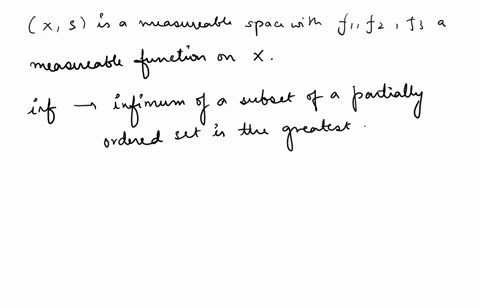 (x, s) is a measureable space with f1, f2, f3 a
measureable function on X.
inf → infimum of a subset of a partially
ordered set is the greatest.